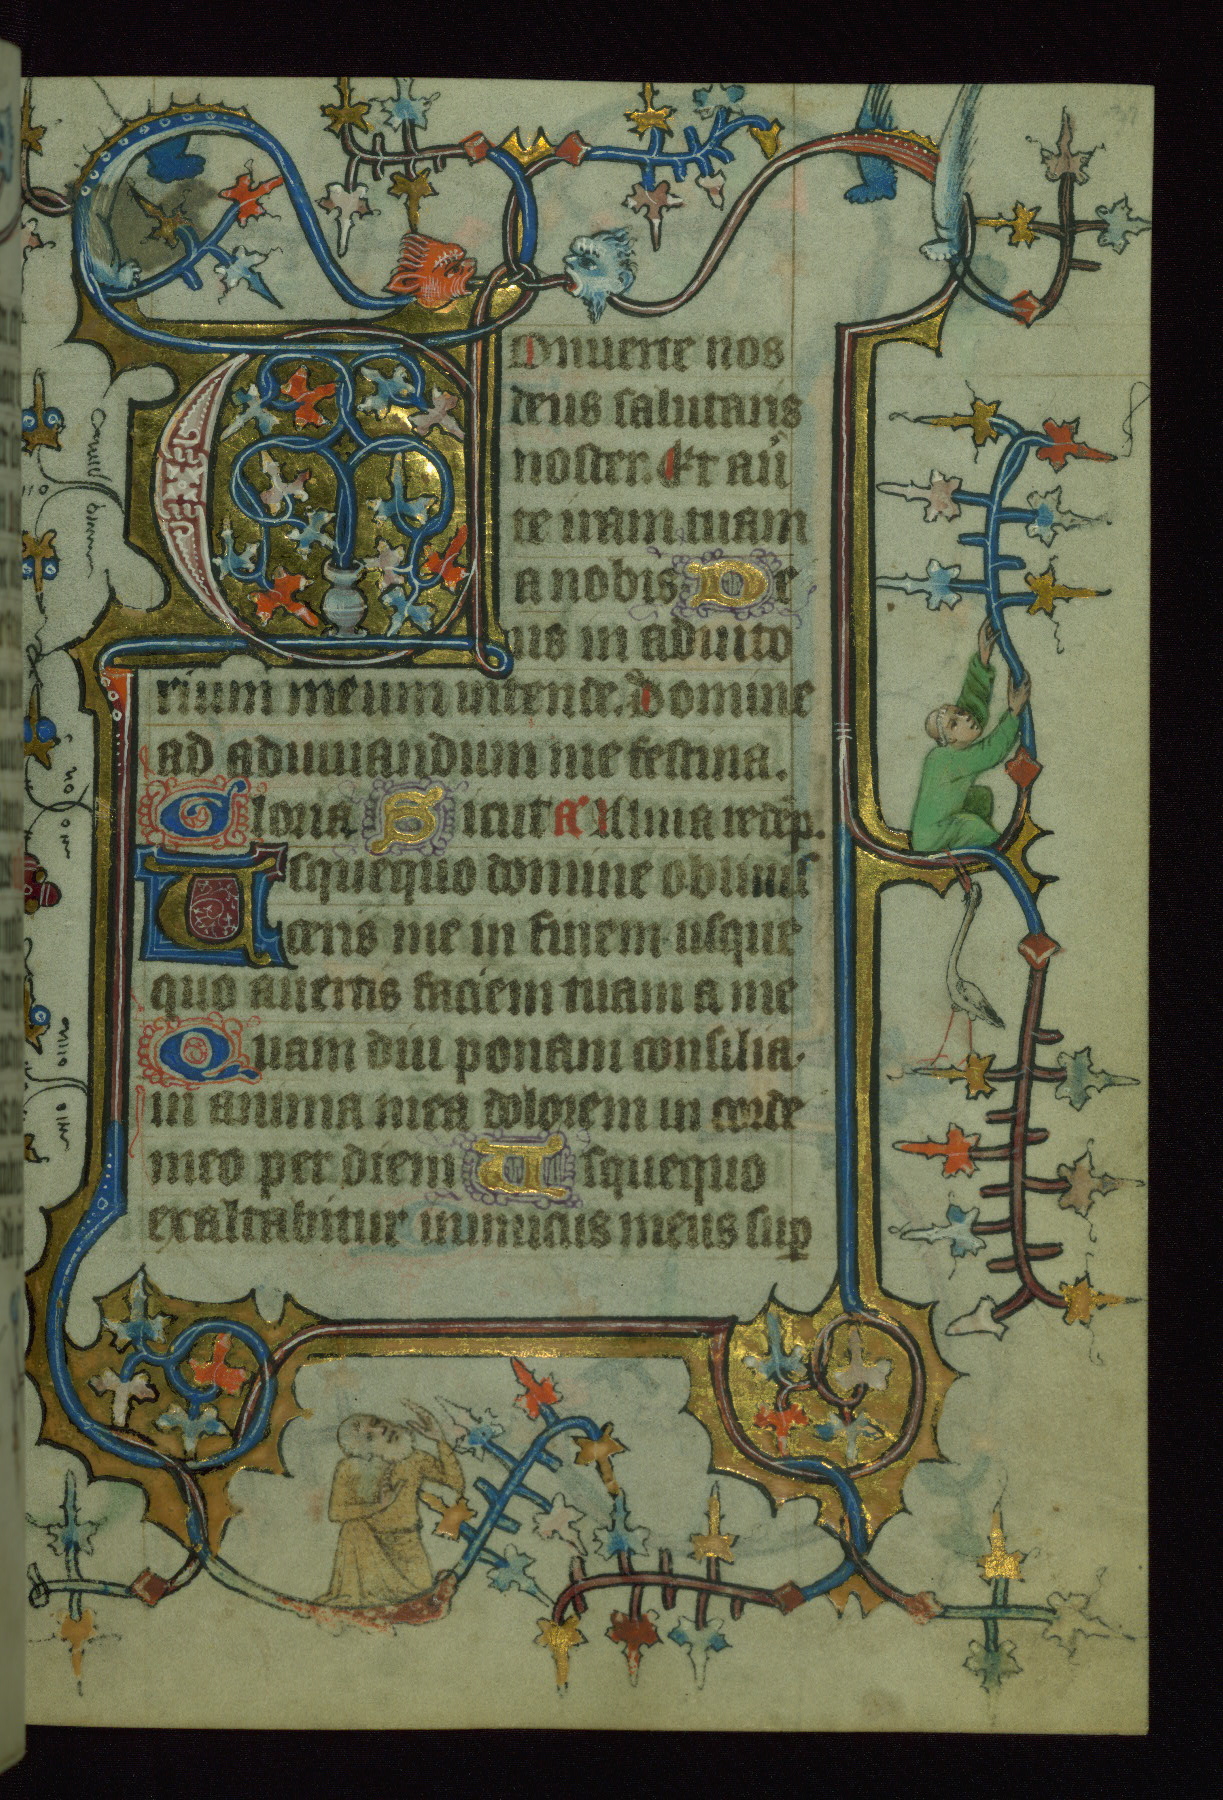 Conuerte nos
deus salutaris
noster. Et au͛
te iram tuam
a nobis De
us in adiuto
rium meum intende. Domine
ad adiuuandum me festina.
Gloria Sicut a͛ Illumina
Usquequo domine obliuis
ceris me in finem usque
quo auertis faciem tuam a me
Quam diu ponam consilia
in anima mea dolorem in corde
meo per diem Usquequo
exaltabitur inimicus meus sup̱